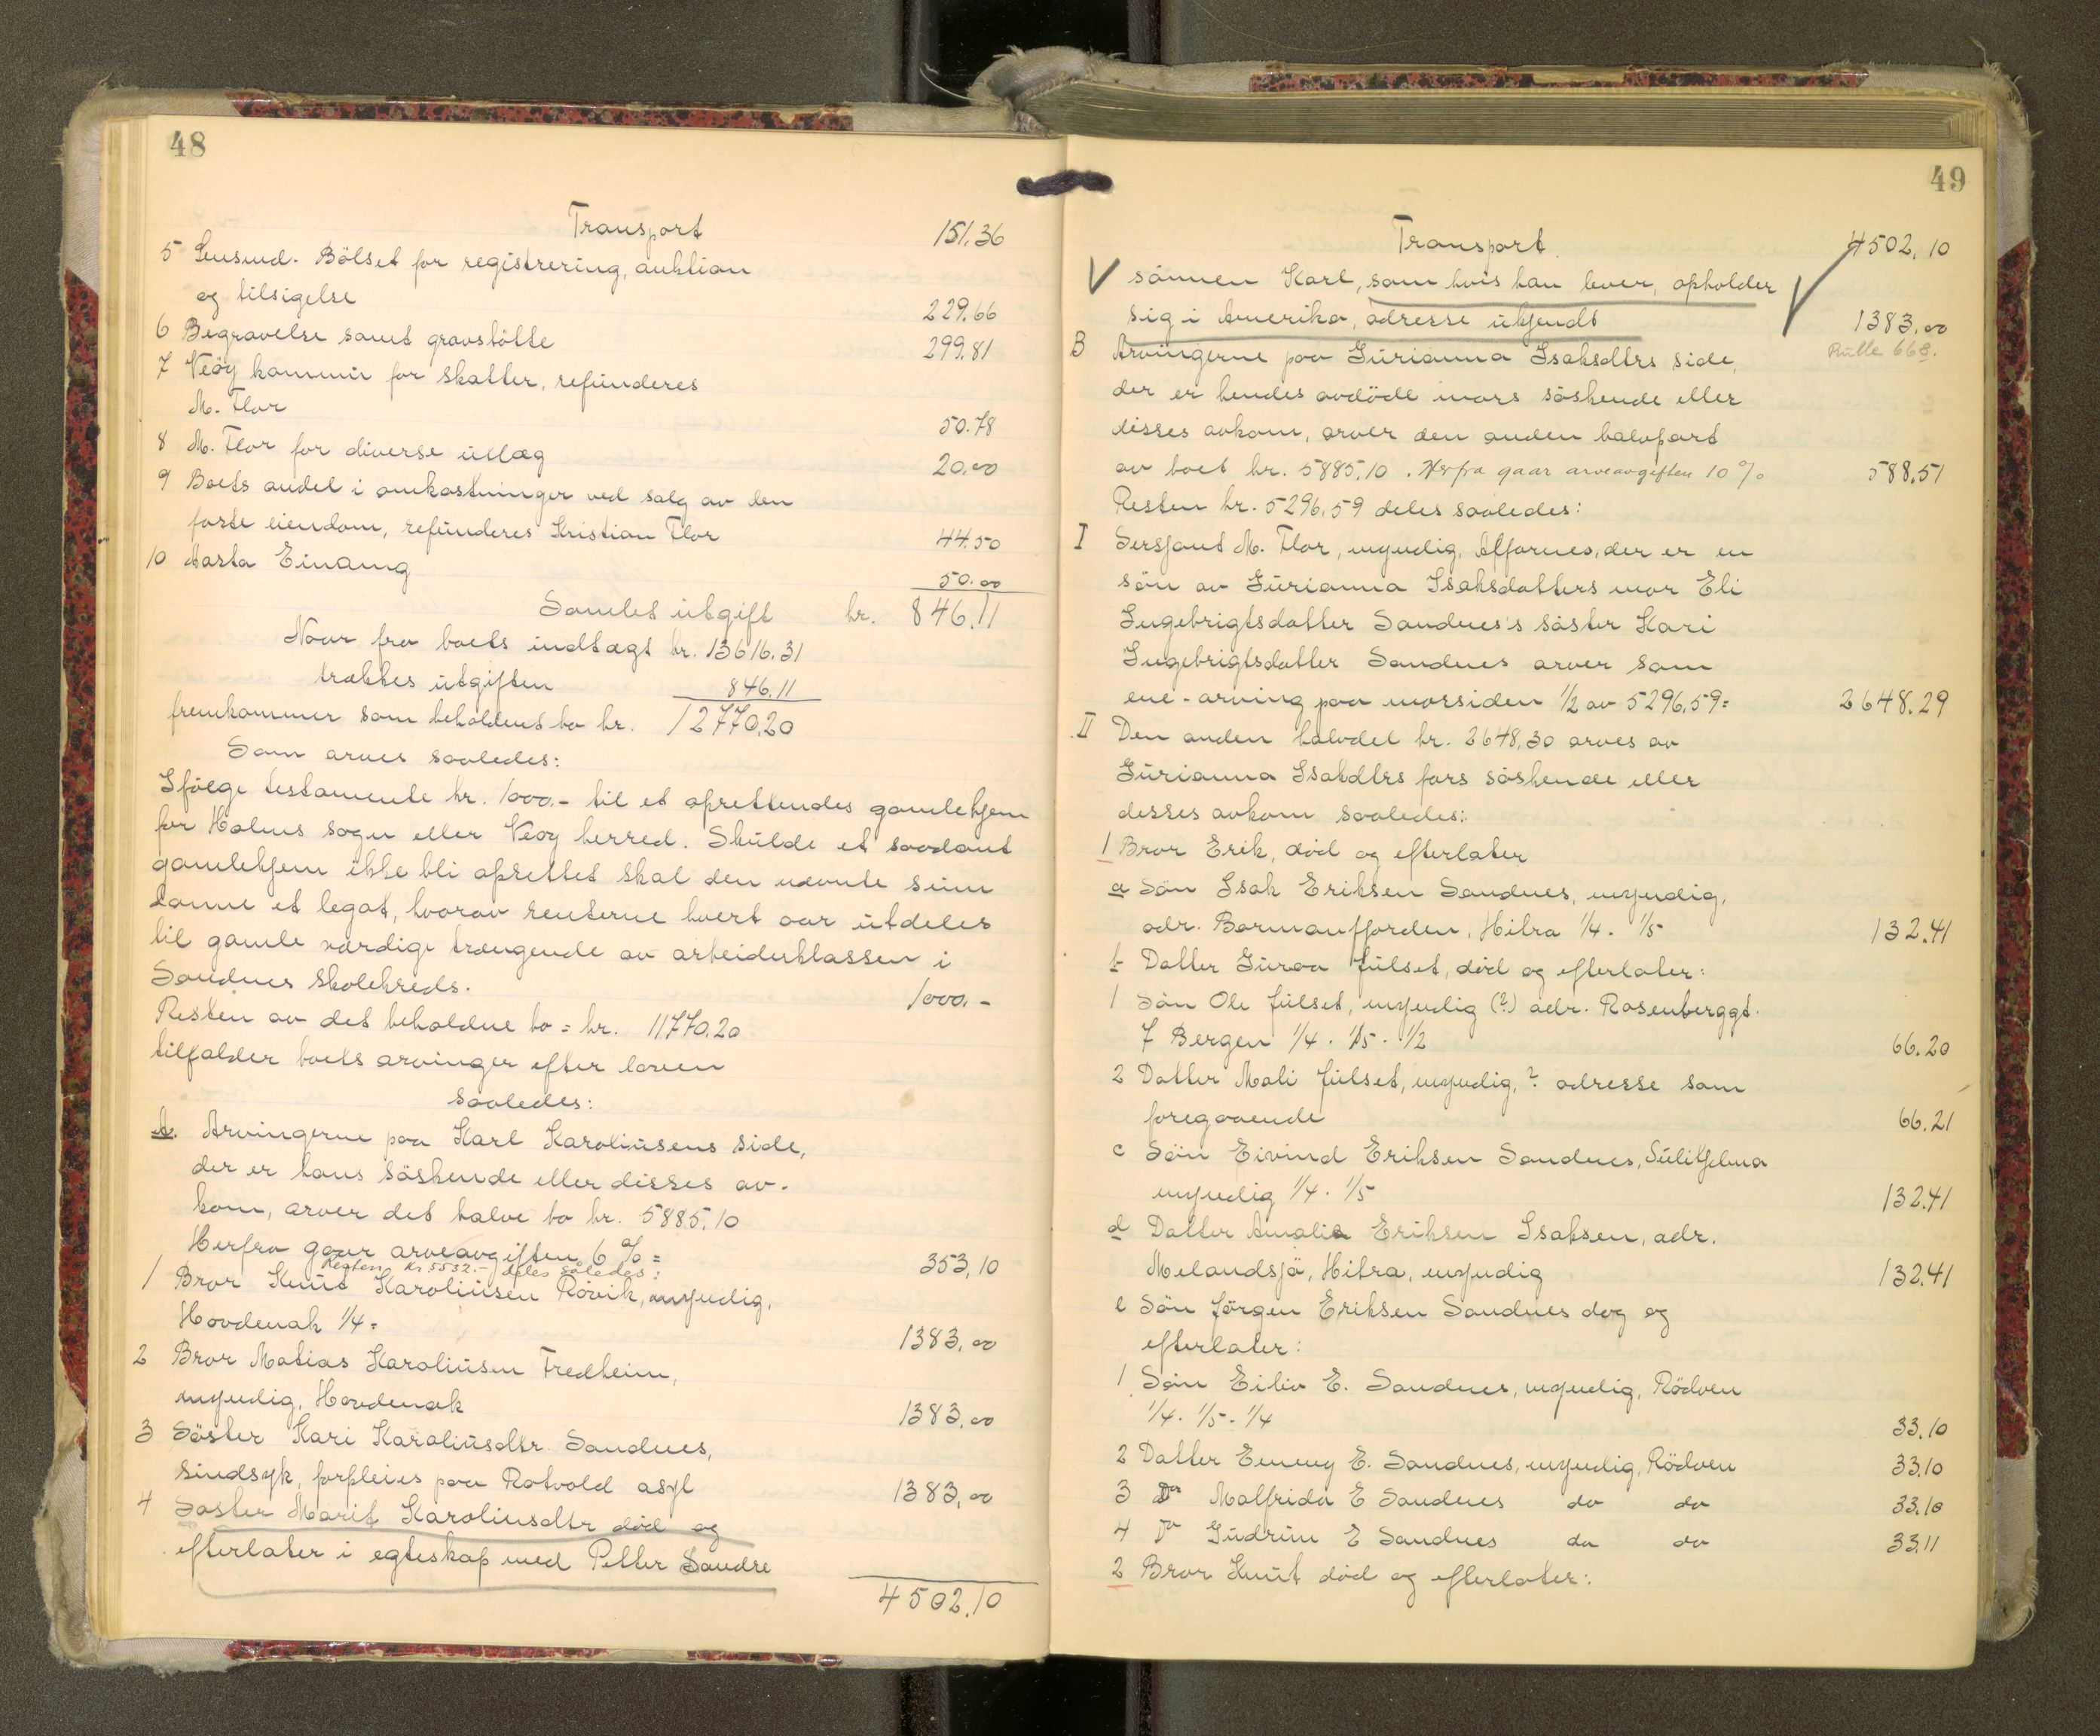 48
Transport 151.36
5 Lensmd. Bölset for registrering, auktion
og tilsigelse 229.66
6 Begravelse samt gravstötte 299.81
7 Veöy kommün for skatter, refünderes
M. Flor 50.78
8 M. Flor for diverse ütlæg 20.00
9 Boets andel i omkostninger ved salg av den
faste eiendom, refünderes Kristian Flor 44.50
10 Aasta Einang 50.00
Samlet ütgift kr. 846.11
Naar fra boets indtægt kr. 13616.31
trækkes ütgiften 846.11
fremkommer som beholdent bo kr. 12770.20
Som arves saaledes:
Ifölge testamente kr. 1000.- til et oprettendes gamlehjem
for Holms sogn eller Veöy herred. Skülde et saadant
gamlehjem ikke bli oprettet skal den nævnte süm
danne et legat, hvorav renterne hvert aar ütdeles
til gamle værdige trængende av arbeiderklassen i
Sandnes skolekreds. 1000.-
Resten av det beholdne bo = kr. 11770.20
tilfalder boets arvinger efter loven
saaledes:
A. Arvingerne paa Karl Karoliüsens side,
der er hans söskende eller disses av-
kom, arver det halve bo kr. 5885.10
Herfra gaar arveavgiften 6 % = 353,10
Resten kr 5532.- deles således:
1 Bror Knüt Karoliüsen Rövik, myndig,
Hovdenak 1/4 = 1383,00
2 Bror Matias Karoliüsen Fredheim,
myndig, Hovdenak 1383,00
3 Söster Kari Karoliüsdtr. Sandnes,
sindsyk, forpleies paa Rotvold asyl 1383,00
4 Söster Marit Karoliusdtr död og
efterlater i egteskap med Petter Sandre
4502.10
49
Transport 4502,10
sönnen Karl, som hvis han lever, opholder
sig i Amerika, adresse ükjendt 1383,00
B Arvingerne paa Gürianna Isaksdtrs side, Rulle 668.
der er hendes avdöde mors söskende eller
disses avkom, arver den anden halvpart
av boet kr. 5885.10. Herfra gaar arveavgiften 10 % 588.51
Resten kr. 5296,59 deles saaledes:
I Sersjant M. Flor, myndig, Alfarnes, der er en
sön av Gürianna Isaksdatters mor Eli
Ingebrigtsdatter Sandnes's söster Kari
Ingebrigtsdatter Sandnes arver som
ene-arving paa morsiden 1/2 av 5296,59 = 2648.29
II Den anden halvdel kr. 2648,30 arves av
Gürianna Isakdtrs fars söskende eller
desses avkom saaledes:
1 Bror Erik, död og efterlater
a Sön Isak Eriksen Sandnes, myndig,
adr. Barmanfjorden, Hitra 1/4 . 1/5 132.41
b Datter Guroa Jülset, död og efterlater:
1 Sön Ole Jülset, myndig (?) adr. Rosenberggt.
7 Bergen 1/4 . 1/5 . 1/2 66.20
2 Datter Mali Jülset, myndig, ? adresse som
foregaaende 66.21
c Sön Eivind Eriksen Sandnes, Sülitjelma
myndig 1/4 . 1/5 132.41
d Datter Amalia Eriksen Isaksen, adr.
Melandsjö, Hitra, myndig 132.41
e Sön Jörgen Eriksen Sandnes död og
efterlater:
1 Sön Eiliv E. Sandnes, myndig, Rödven
1/4 . 1/5 . 1/4 33.10
2 Datter Emmy E. Sandnes, myndig, Rödven 33.10
3 Do Malfrida E Sandnes do do 33.10
4 Do Güdrün E Sandnes do do 33.11
2 Bror Knüt död og efterlater: